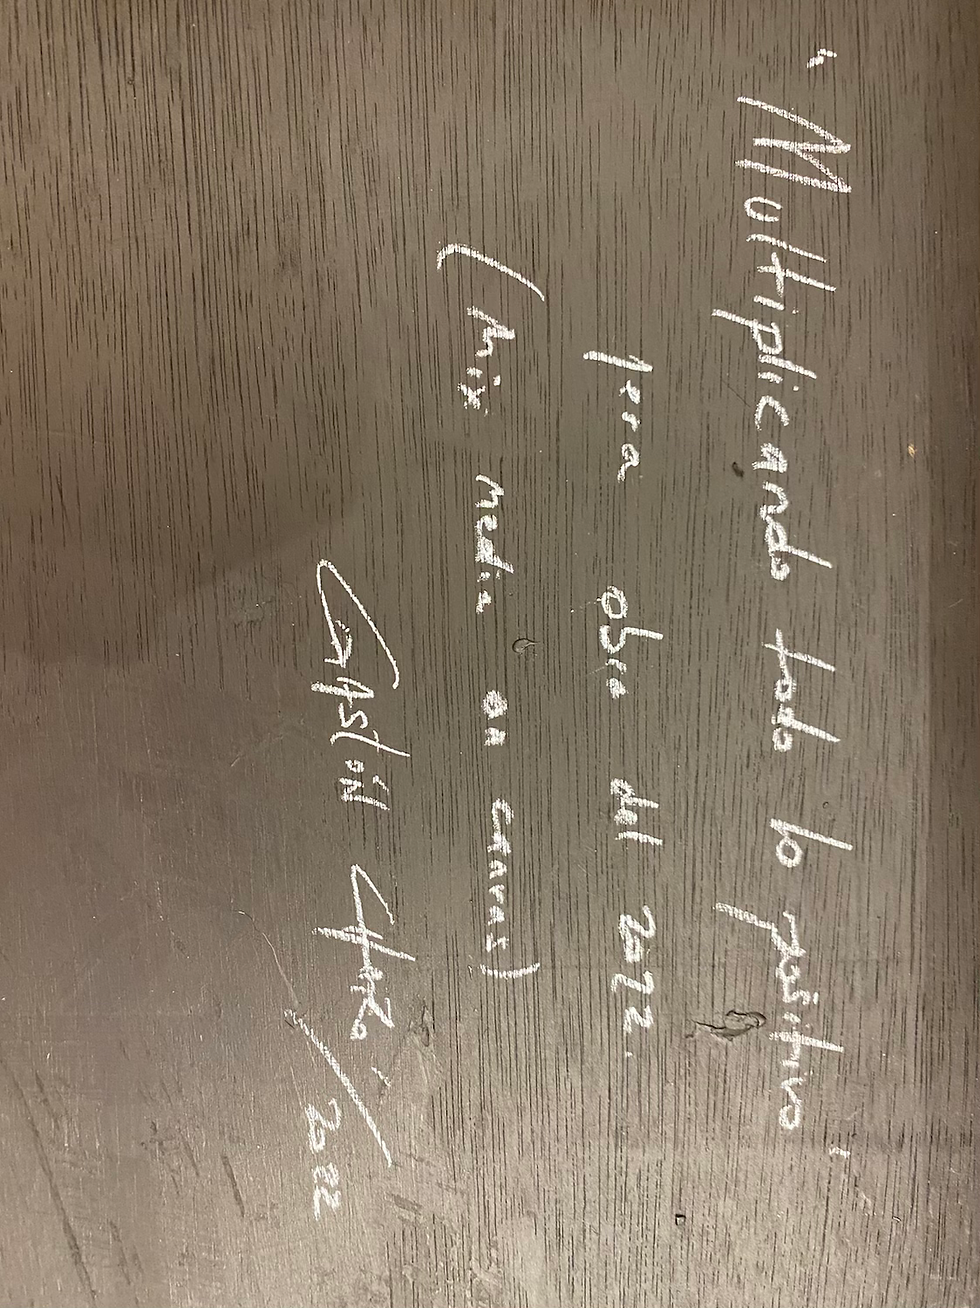 "Multiplicando todo lo positivo"
1rra obra del 2022.
(Mix media on canvas)
GASTÓN CHARÓ / 2022